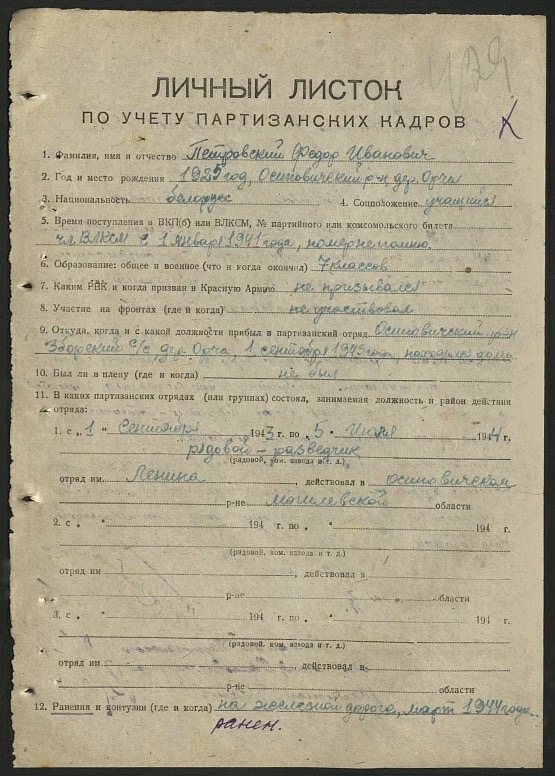 ЛИЧНЫЙ ЛИСТОК
ПО УЧЕТУ ПАРТИЗАНСКИХ КАДРОВ
1. Фамилия, имя и отчество Петровский Федор Иванович
2. Год и место рождения 1925 год, Осиповичский р-н, дер. Орча
3. Национальность белорус 4. Соцположение учащийся
5. Время поступления в ВКП(б) или ВЛКСМ, № партийного или комсомольского билета
чл. ВЛКСМ с 1 января 1941 года, номер не помню.
6. Образование: общее и военное (что и когда окончил) 7 классов
7. Каким РВК и когда призван в Красную Армию не призывался
8. Участие на фронтах (где и когда) не участвовал
9. Откуда, когда и с какой должности прибыл в партизанский отряд Осиповичский р-н
Зборский с/с дер. Орча, 1 сентября 1943 года, находился дома
10. Был ли в плену (где и когда) не был
11. В каких партизанских отрядах (или группах) состоял, занимаемая должность и район действия
отряда:
1. с „ 1 " Сентября 1943 г. по „ 5 " Июля 1944 г.
рядовой - разведчик
(рядовой, ком. взвода и т. д.)
отряд им. Ленина, действовал в осиповичском
р-не могилевской области
2. с „ " 194 г. по „ " 194 г.
(рядовой, ком. взвода и т. д.)
отряд им. , действовал в
р-не области
3. с „ " 194 г. по „ " 194 г.
(рядовой, ком. взвода и т. д.)
отряд им. , действовал в
р-не области
12. Ранения и контузии (где и когда) на железной дороге, март 1944 года
ранен.